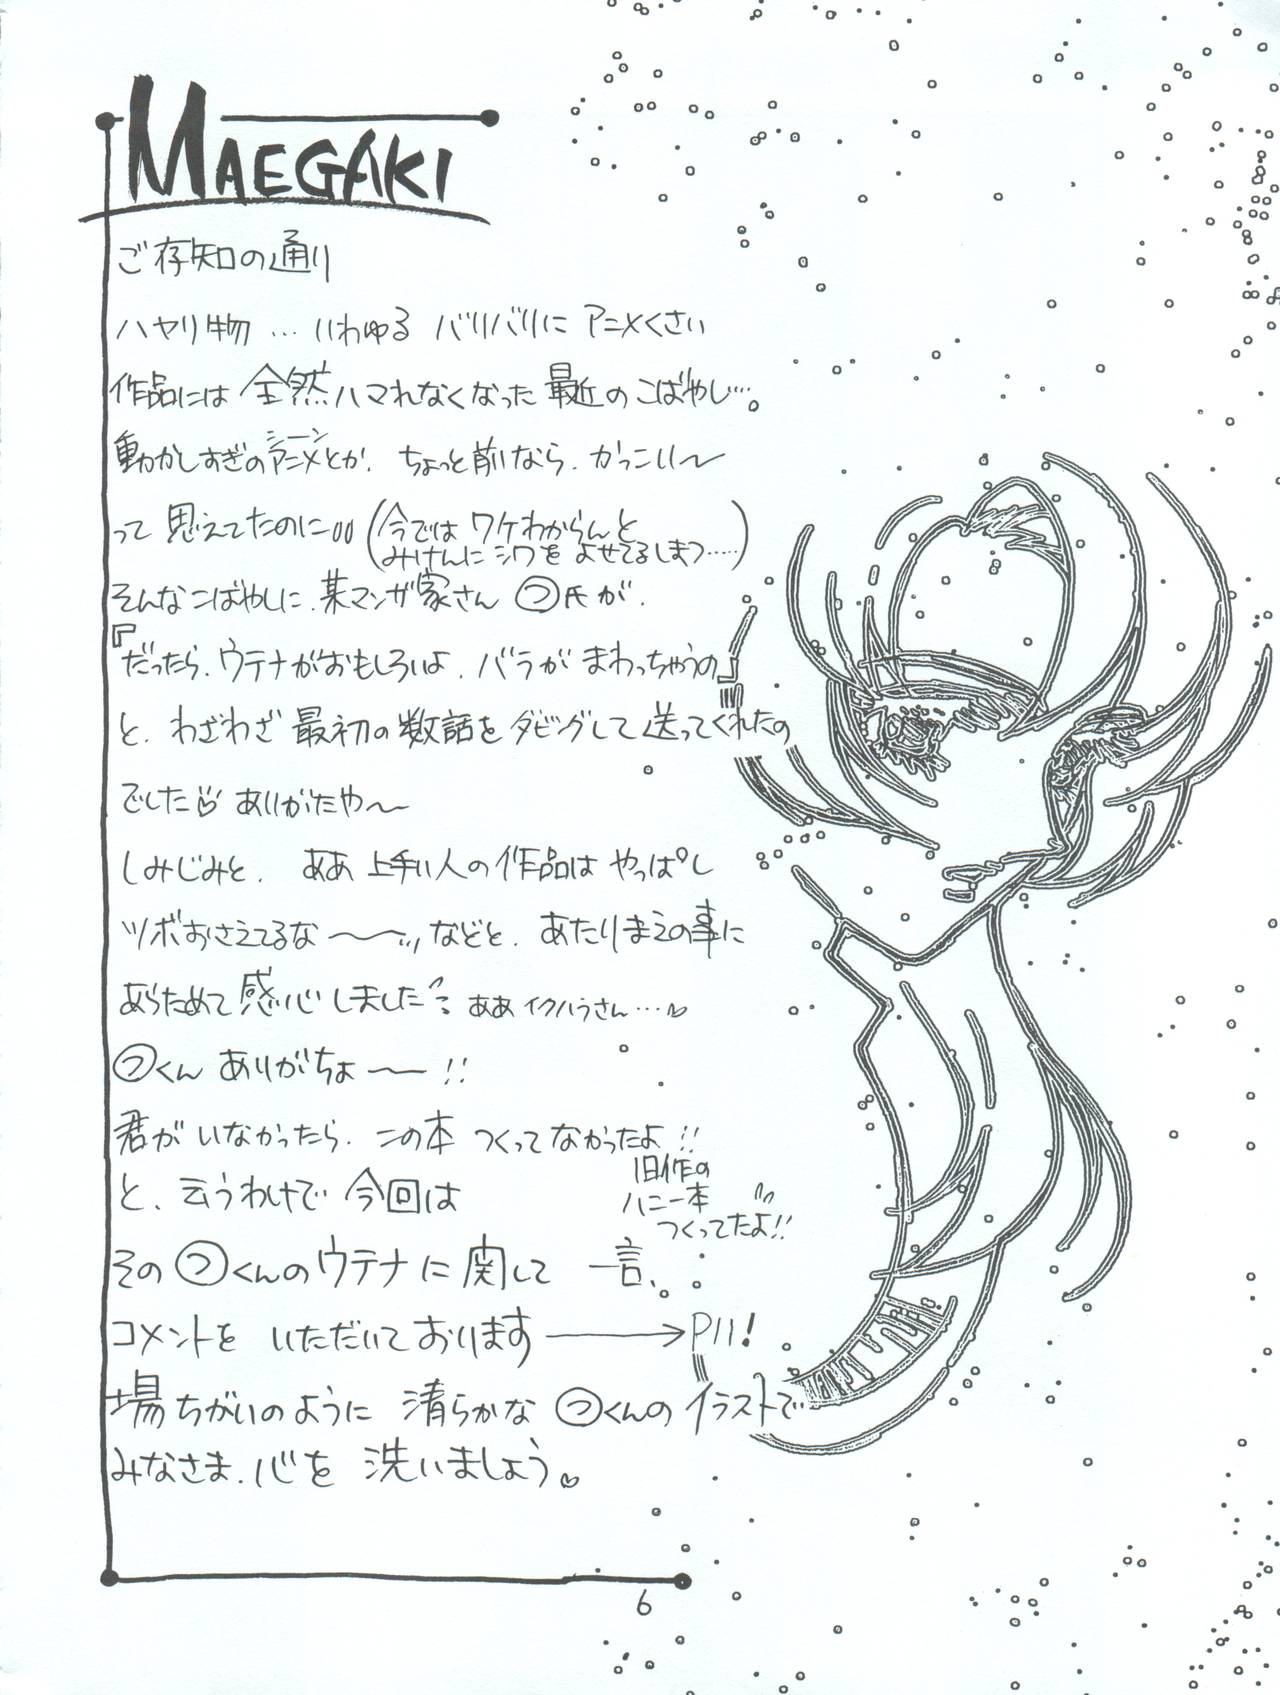 MAEGAKI
ご存知の通り
ハヤリ物…いわゆる バリバリに アニメくさい
作品には 全然ハマれなくなった 最近の こばやし…。
動かしすぎのアニメシーンとか、ちょっと前なら、かっこいい〜
って 思えてたのに
(今では ワケわからんと
みけんに シワを よせてるしまつ……)
そんなこばやしに、某マンガ家さん つ氏が、
『だったら、ウテナがおもしろいよ、バラが まわっちゃうの』
と、わざわざ 最初の数話を ダビングして 送ってくれたの
でした♡ ありがたや〜
しみじみと、 ああ 上手い人の作品は やっぱし
ツボおさえてるな〜〜 などと、あたりまえの事に
あらためて 感心しました ああ イクハラさん…♡
つくん ありがちょ〜!!
君が いなかったら、この本 つくってなかったよ!!
旧作の
ハニー本
つくってたよ!!
と、云うわけで 今回は
その つくんのウテナに 関して 一言、
コメントを いただいております → P11!
場ちがいのように 清らかな つくんの イラストで
みなさま、心を 洗いましょう。♡
6